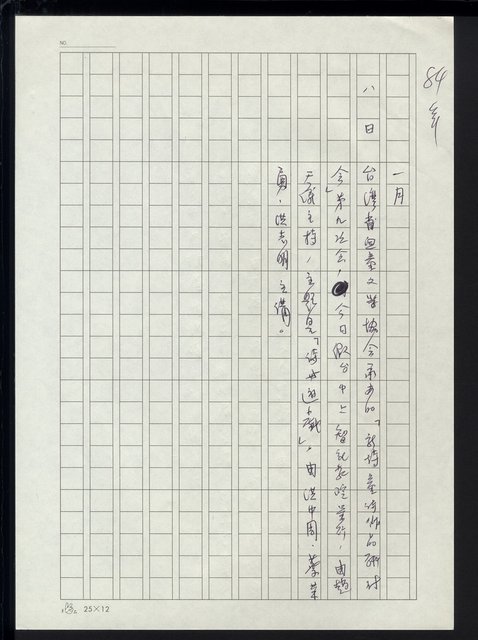 NO.
84年
一月
八日 台灣省兒童文學協會承辦的「新詩童詩作品研討
會」第九次會,今日假台中上智社教院舉行,由趙
天儀主持,主題是「詩與遊戲」,由洪中周、蔡榮
勇、洪志明主講。
25×12